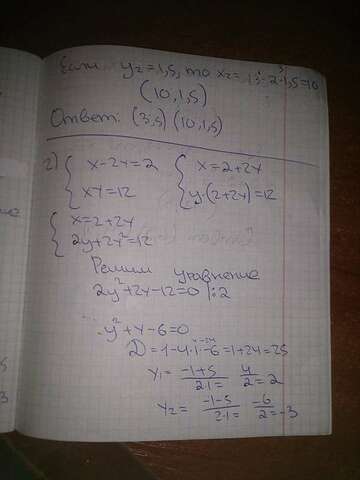 Если y₂=1,5, то x₂=13-2·1,5=10
(10,1,5)
Ответ: (3,5) (10,1,5)
2) { x-2y=2 { x=2+2y
xy=12 y·(2+2y)=12
{ x=2+2y
2y+2y²=12
Решим уравнение
2y²+2y-12=0 |:2
y²+y-6=0
D=1-4·1·-6=1+24=25
y₁= -1+5/2·1= 4/2=2
y₂= -1-5/2·1= -6/2=-3